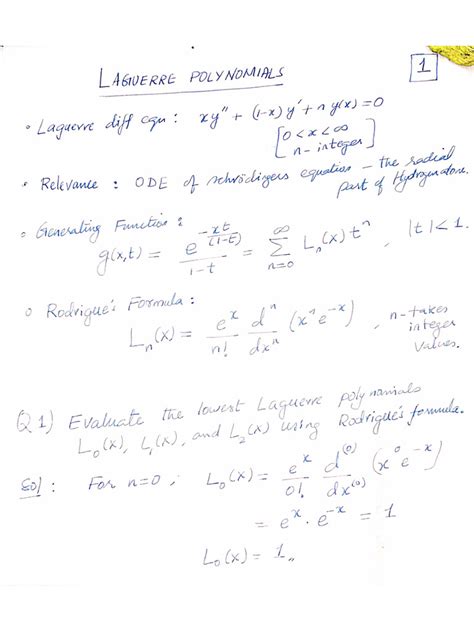 LAGUERRE POLYNOMIALS
1
• Laguerre diff eqn : xy" + (1-x) y' + n y(x) = 0
[0 < x < ∞
n - integer]
• Relevance : ODE of schrodingers equation – the radial
part of Hydrogen atom.
• Generating Function :
g(x,t) = e^(-xt/(1-t)) / (1-t) = ∑_{n=0}^{∞} L_n(x) t^n , |t| < 1.
• Rodrigue's Formula :
L_n(x) = e^x/n! d^n/dx^n (x^n e^-x) , n - takes
integer
values.
Q 1) Evaluate the lowest Laguerre polynomials
L_0(x), L_1(x), and L_2(x) using Rodrigue's formula.
Sol : For n=0 ; L_0(x) = e^x/0! d^(0)/dx^(0) (x^0 e^-x)
= e^x . e^-x = 1
L_0(x) = 1 ,,